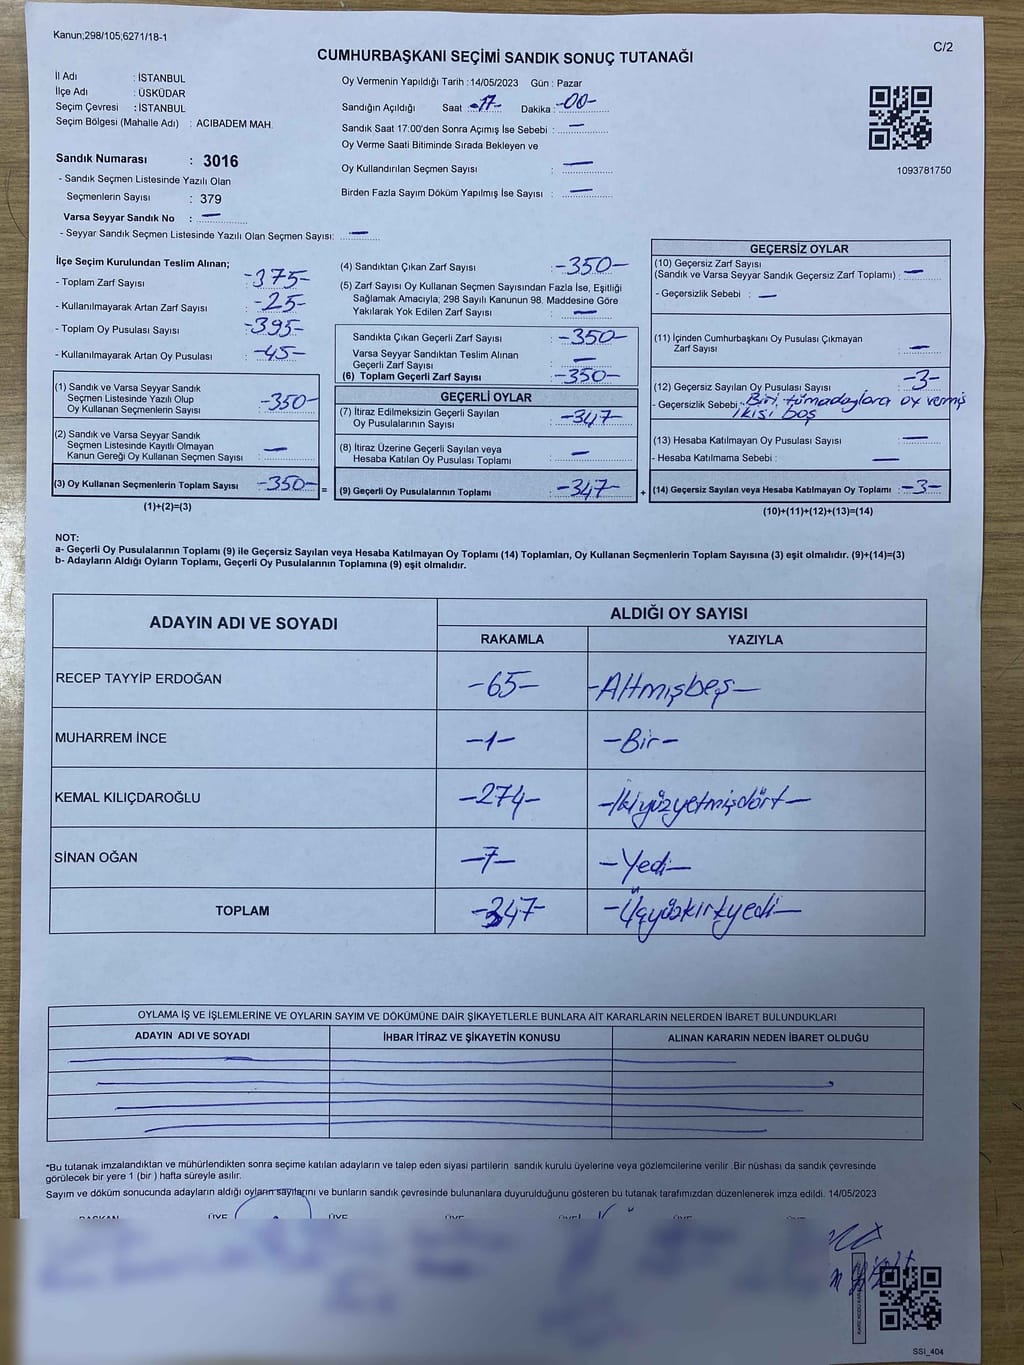 Kanun;298/105;6271/18-1
C/2
CUMHURBAŞKANI SEÇİMİ SANDIK SONUÇ TUTANAĞI
İl Adı : İSTANBUL
İlçe Adı : ÜSKÜDAR
Seçim Çevresi : İSTANBUL
Seçim Bölgesi (Mahalle Adı) : ACIBADEM MAH.
Sandık Numarası : 3016
- Sandık Seçmen Listesinde Yazılı Olan
Seçmenlerin Sayısı : 379
Varsa Seyyar Sandık No : —
- Seyyar Sandık Seçmen Listesinde Yazılı Olan Seçmen Sayısı: —
Oy Vermenin Yapıldığı Tarih : 14/05/2023 Gün : Pazar
Sandığın Açıldığı Saat : -17- Dakika : -00-
Sandık Saat 17:00'den Sonra Açımış İse Sebebi : —
Oy Verme Saati Bitiminde Sırada Bekleyen ve
Oy Kullandırılan Seçmen Sayısı : —
Birden Fazla Sayım Döküm Yapılmış İse Sayısı : —
1093781750
İlçe Seçim Kurulundan Teslim Alınan;
- Toplam Zarf Sayısı : -375-
- Kullanılmayarak Artan Zarf Sayısı : -25-
- Toplam Oy Pusulası Sayısı : -395-
- Kullanılmayarak Artan Oy Pusulası : -45-
(1) Sandık ve Varsa Seyyar Sandık
Seçmen Listesinde Yazılı Olup
Oy Kullanan Seçmenlerin Sayısı : -350-
(2) Sandık ve Varsa Seyyar Sandık
Seçmen Listesinde Kayıtlı Olmayan
Kanun Gereği Oy Kullanan Seçmen Sayısı : —
(3) Oy Kullanan Seçmenlerin Toplam Sayısı : -350- =
(1)+(2)=(3)
(4) Sandıktan Çıkan Zarf Sayısı : -350-
(5) Zarf Sayısı Oy Kullanan Seçmen Sayısından Fazla İse, Eşitliği
Sağlamak Amacıyla; 298 Sayılı Kanunun 98. Maddesine Göre
Yakılarak Yok Edilen Zarf Sayısı : —
Sandıkta Çıkan Geçerli Zarf Sayısı : -350-
Varsa Seyyar Sandıktan Teslim Alınan
Geçerli Zarf Sayısı : —
(6) Toplam Geçerli Zarf Sayısı : -350-
GEÇERLİ OYLAR
(7) İtiraz Edilmeksizin Geçerli Sayılan
Oy Pusulalarının Sayısı : -347-
(8) İtiraz Üzerine Geçerli Sayılan veya
Hesaba Katılan Oy Pusulası Toplamı : —
(9) Geçerli Oy Pusulalarının Toplamı : -347- +
GEÇERSİZ OYLAR
(10) Geçersiz Zarf Sayısı
(Sandık ve Varsa Seyyar Sandık Geçersiz Zarf Toplamı) : —
- Geçersizlik Sebebi : —
(11) İçinden Cumhurbaşkanı Oy Pusulası Çıkmayan
Zarf Sayısı : —
(12) Geçersiz Sayılan Oy Pusulası Sayısı : -3-
- Geçersizlik Sebebi : Biri tüm adaylara oy vermiş
ikisi boş
(13) Hesaba Katılmayan Oy Pusulası Sayısı : —
- Hesaba Katılmama Sebebi : —
(14) Geçersiz Sayılan veya Hesaba Katılmayan Oy Toplamı : -3-
(10)+(11)+(12)+(13)=(14)
NOT:
a- Geçerli Oy Pusulalarının Toplamı (9) ile Geçersiz Sayılan veya Hesaba Katılmayan Oy Toplamı (14) Toplamları, Oy Kullanan Seçmenlerin Toplam Sayısına (3) eşit olmalıdır. (9)+(14)=(3)
b- Adayların Aldığı Oyların Toplamı, Geçerli Oy Pusulalarının Toplamına (9) eşit olmalıdır.
ADAYIN ADI VE SOYADI ALDIĞI OY SAYISI
RAKAMLA YAZIYLA
RECEP TAYYİP ERDOĞAN -65- -Altmışbeş-
MUHARREM İNCE -1- -Bir-
KEMAL KILIÇDAROĞLU -274- -İkiyüzyetmişdört-
SİNAN OĞAN -7- -Yedi-
TOPLAM -347- -Üçyüzkırkyedi-
OYLAMA İŞ VE İŞLEMLERİNE VE OYLARIN SAYIM VE DÖKÜMÜNE DAİR ŞİKAYETLERLE BUNLARA AİT KARARLARIN NELERDEN İBARET BULUNDUKLARI
ADAYIN ADI VE SOYADI İHBAR İTİRAZ VE ŞİKAYETİN KONUSU ALINAN KARARIN NEDEN İBARET OLDUĞU
*Bu tutanak imzalandıktan ve mühürlendikten sonra seçime katılan adayların ve talep eden siyasi partilerin sandık kurulu üyelerine veya gözlemcilerine verilir .Bir nüshası da sandık çevresinde
görülecek bir yere 1 (bir ) hafta süreyle asılır.
Sayım ve döküm sonucunda adayların aldığı oyların sayılarını ve bunların sandık çevresinde bulunanlara duyurulduğunu gösteren bu tutanak tarafımızdan düzenlenerek imza edildi. 14/05/2023
BAŞKAN ÜYE ÜYE ÜYE ÜYE ÜYE ÜYE
SSI_404